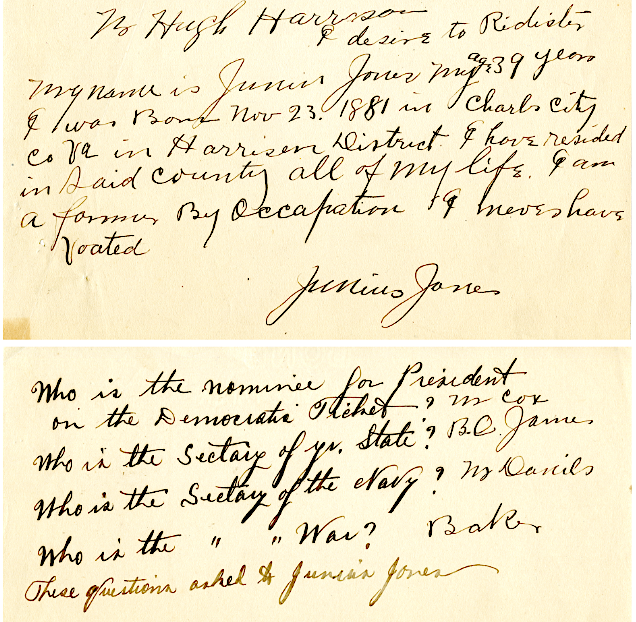 Mr Hugh Harrison
I desire to Ridister
My name is Junius Jones My age 39 years
I was Born Nov 23. 1881 in Charls city
Co Va in Harrison District. I have resided
in said county all of my life. I am
a farmer By Occapation I never have
Voated
Junius Jones
Who is the nominee for President
on the Democratic Ticket? Mr Cox
Who is the Sectary of yr. State? B.O. James
Who is the Sectary of the Navy? Mr Danils
Who is the " " War? Baker
These questions asked to Junius Jones